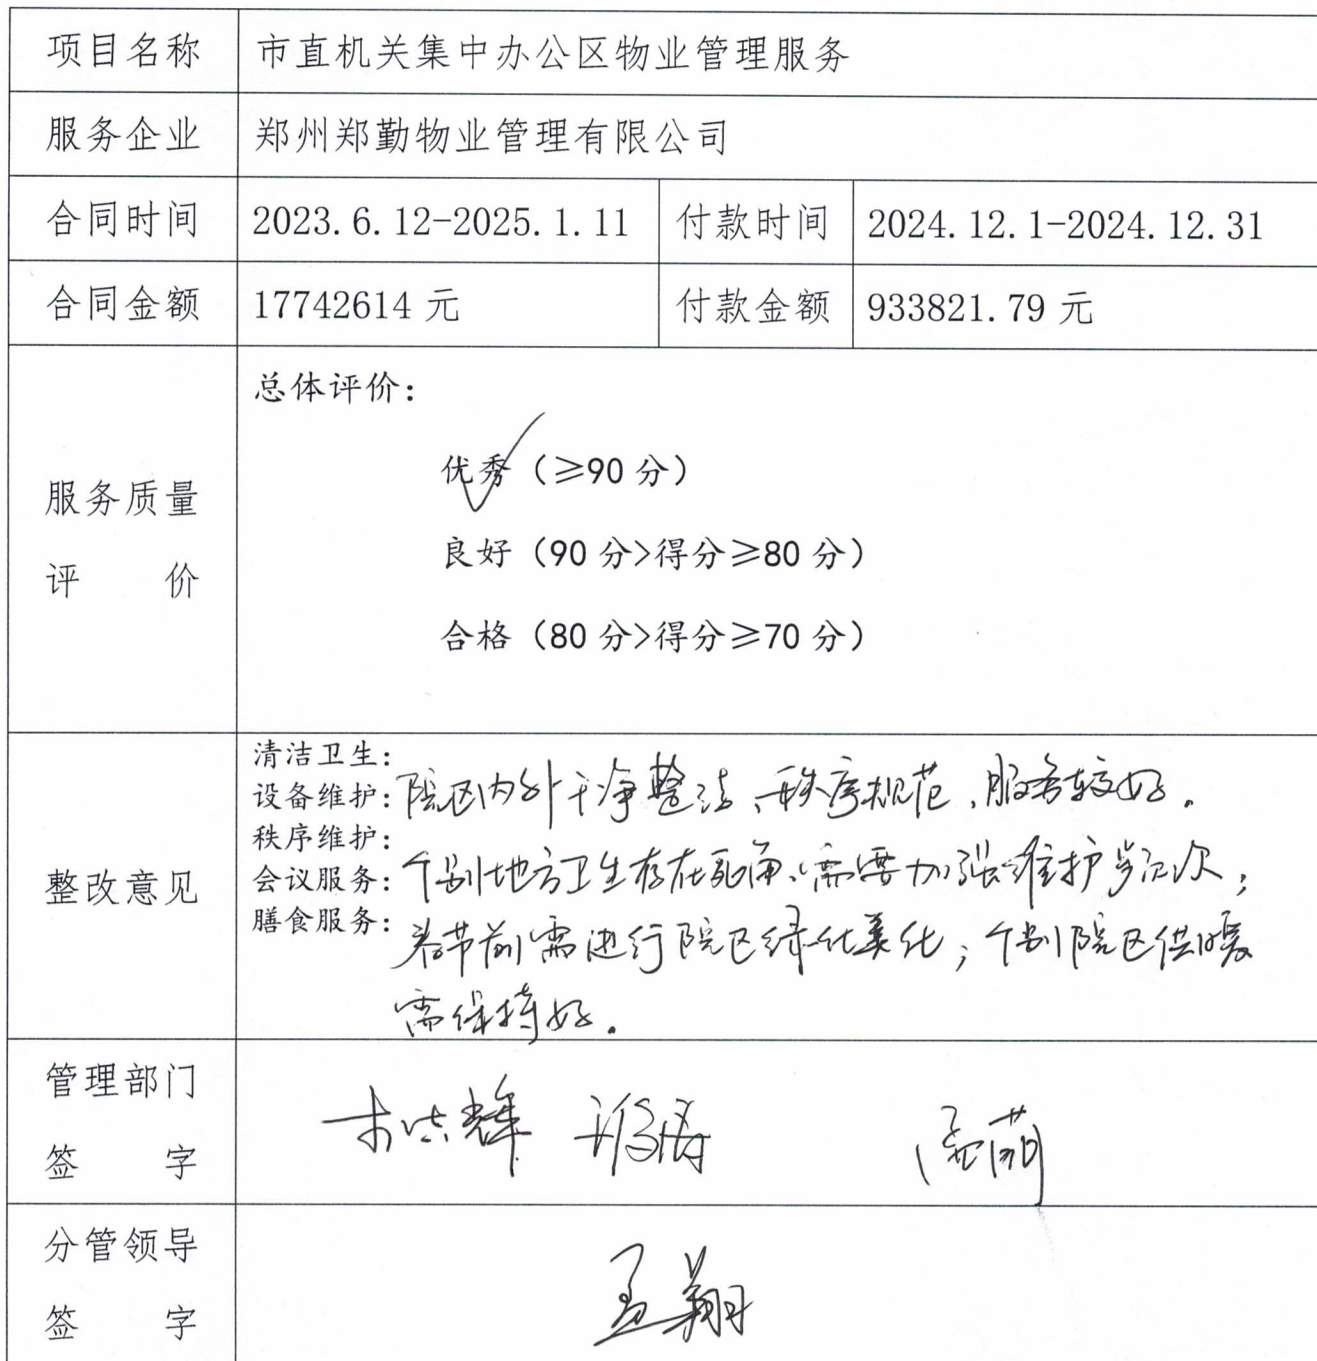 项目名称 市直机关集中办公区物业管理服务
服务企业 郑州郑勤物业管理有限公司
合同时间 2023.6.12-2025.1.11 付款时间 2024.12.1-2024.12.31
合同金额 17742614元 付款金额 933821.79元
服务质量
评 价
总体评价：
优秀（≥90分）
良好（90分>得分≥80分）
合格（80分>得分≥70分）
整改意见
清洁卫生：
设备维护：
秩序维护：
会议服务：
膳食服务：
院区内外干净整洁、秩序规范，服务较好。
个别地方卫生存在死角、需要加强维护
春节前需进行院区绿化美化；个别院区供暖
需保持好。
管理部门
签 字
分管领导
签 字
孟翔